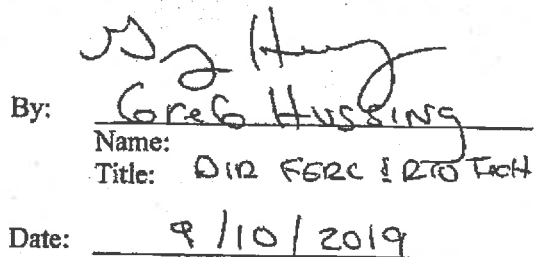 By: Greg Hussing
Name:
Title: DIR FERC & RTO Tech
Date: 9/10/2019